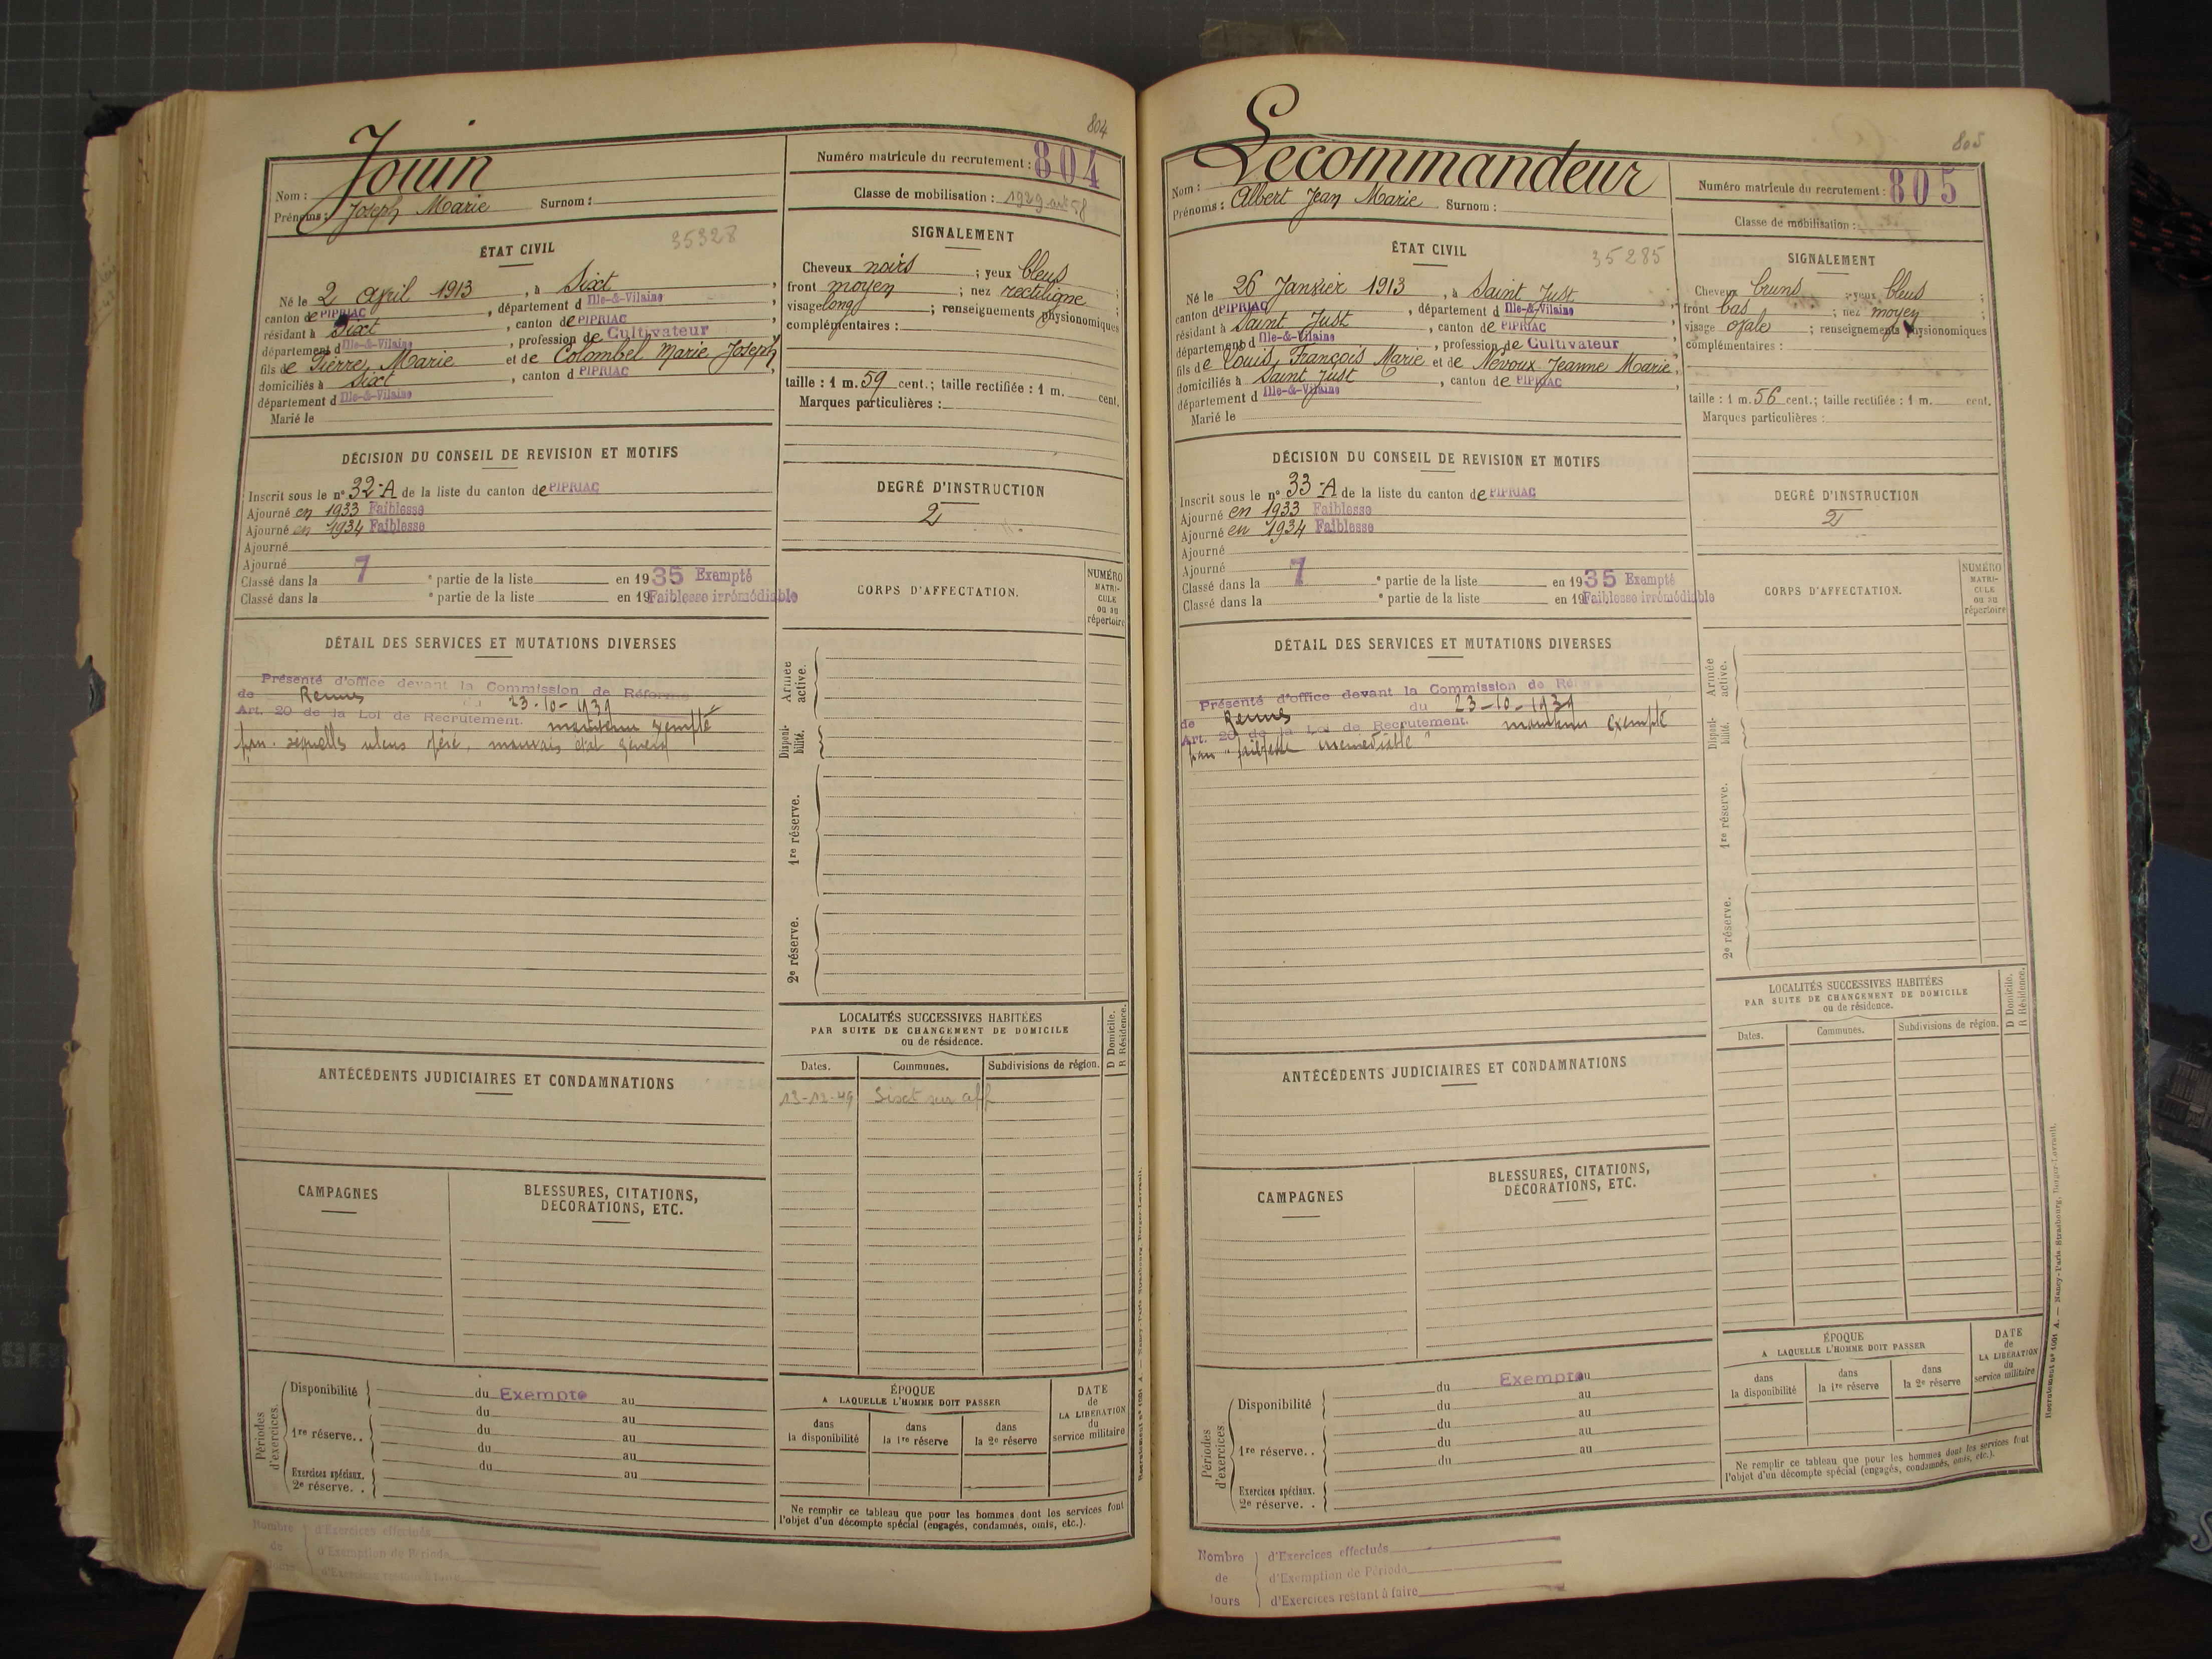 804
Jouin
Nom :
Prénoms : Joseph Marie Surnom :
Numéro matricule du recrutement : 804
Classe de mobilisation : 1929 art 58
ÉTAT CIVIL
35328
Né le 2 Avril 1913, à Sixt,
canton de PIPRIAC, département d Ille-&-Vilaine,
résidant à Sixt, canton de PIPRIAC,
département d Ille-&-Vilaine, profession de Cultivateur
fils de Pierre, Marie et de Colombel Marie Joseph,
domiciliés à Sixt, canton d PIPRIAC,
département d Ille-&-Vilaine
Marié le
SIGNALEMENT
Cheveux noirs ; yeux bleus ;
front moyen ; nez rectiligne ;
visage long ; renseignements physionomiques
complémentaires :
taille : 1 m. 59 cent.; taille rectifiée : 1 m. cent.
Marques particulières :
DÉCISION DU CONSEIL DE REVISION ET MOTIFS
Inscrit sous le n° 32-A de la liste du canton de PIPRIAC
Ajourné en 1933 Faiblesse
Ajourné en 1934 Faiblesse
Ajourné
Ajourné
Classé dans la 7 e partie de la liste en 1935 Exempté
Classé dans la e partie de la liste en 19 Faiblesse irrémédiable
DEGRÉ D'INSTRUCTION
2
DÉTAIL DES SERVICES ET MUTATIONS DIVERSES
Présenté d'office devant la Commission de Réforme
de Rennes du 23-10-1939
Art. 20 de la Loi de Recrutement. maintenu exempté
pour séquelles ulcus opéré, mauvais état général
CORPS D'AFFECTATION.
NUMÉRO
MATRI-
CULE
ou au
répertoire
Armée
active.
Disponi-
bilité.
1re réserve.
2e réserve.
LOCALITÉS SUCCESSIVES HABITÉES
PAR SUITE DE CHANGEMENT DE DOMICILE
ou de résidence.
D Domicile.
R Résidence.
Dates. Communes. Subdivisions de région.
13-12-49 Sixt sur aff
ANTÉCÉDENTS JUDICIAIRES ET CONDAMNATIONS
CAMPAGNES
BLESSURES, CITATIONS,
DÉCORATIONS, ETC.
Périodes
d'exercices.
Disponibilité du Exempté au
du au
1re réserve. . du au
du au
Exercices spéciaux. du au
2e réserve. .
ÉPOQUE
A LAQUELLE L'HOMME DOIT PASSER
dans
la disponibilité
dans
la 1re réserve
dans
la 2e réserve
DATE
de
LA LIBÉRATION
du
service militaire
Ne remplir ce tableau que pour les hommes dont les services font
l'objet d'un décompte spécial (engagés, condamnés, omis, etc.).
Nombre d'Exercices effectués
de d'Exemption de Période
Jours d'Exercices restant à faire
805
Lecommandeur
Nom :
Prénoms : Albert Jean Marie Surnom :
Numéro matricule du recrutement : 805
Classe de mobilisation :
ÉTAT CIVIL
35285
Né le 26 Janvier 1913, à Saint Just,
canton d PIPRIAC, département d Ille-&-Vilaine,
résidant à Saint Just, canton de PIPRIAC,
département d Ille-&-Vilaine, profession de Cultivateur
fils de Louis, François Marie et de Nevoux Jeanne Marie,
domiciliés à Saint Just, canton de PIPRIAC,
département d Ille-&-Vilaine
Marié le
SIGNALEMENT
Cheveux bruns ; yeux bleus ;
front bas ; nez moyen ;
visage ovale ; renseignements physionomiques
complémentaires :
taille : 1 m. 56 cent.; taille rectifiée : 1 m. cent.
Marques particulières :
DÉCISION DU CONSEIL DE REVISION ET MOTIFS
Inscrit sous le n° 33-A de la liste du canton de PIPRIAC
Ajourné en 1933 Faiblesse
Ajourné en 1934 Faiblesse
Ajourné
Ajourné
Classé dans la 7 e partie de la liste en 1935 Exempté
Classé dans la e partie de la liste en 19 Faiblesse irrémédiable
DEGRÉ D'INSTRUCTION
2
DÉTAIL DES SERVICES ET MUTATIONS DIVERSES
Présenté d'office devant la Commission de Réforme
de Rennes du 23-10-1939
Art. 20 de la Loi de Recrutement. maintenu exempté
pour "faiblesse irrémédiable"
CORPS D'AFFECTATION.
NUMÉRO
MATRI-
CULE
ou au
répertoire
Armée
active.
Disponi-
bilité.
1re réserve.
2e réserve.
LOCALITÉS SUCCESSIVES HABITÉES
PAR SUITE DE CHANGEMENT DE DOMICILE
ou de résidence.
D Domicile.
R Résidence.
Dates. Communes. Subdivisions de région.
ANTÉCÉDENTS JUDICIAIRES ET CONDAMNATIONS
CAMPAGNES
BLESSURES, CITATIONS,
DÉCORATIONS, ETC.
Périodes
d'exercices.
Disponibilité du Exempté au
du au
du au
1re réserve. . du au
du au
Exercices spéciaux.
2e réserve. .
ÉPOQUE
A LAQUELLE L'HOMME DOIT PASSER
dans
la disponibilité
dans
la 1re réserve
dans
la 2e réserve
DATE
de
LA LIBÉRATION
du
service militaire
Ne remplir ce tableau que pour les hommes dont les services font
l'objet d'un décompte spécial (engagés, condamnés, omis, etc.).
Recrutement n° 1001 A. — Nancy-Paris-Strasbourg, Berger-Levrault.
Nombre d'Exercices effectués
de d'Exemption de Période
Jours d'Exercices restant à faire